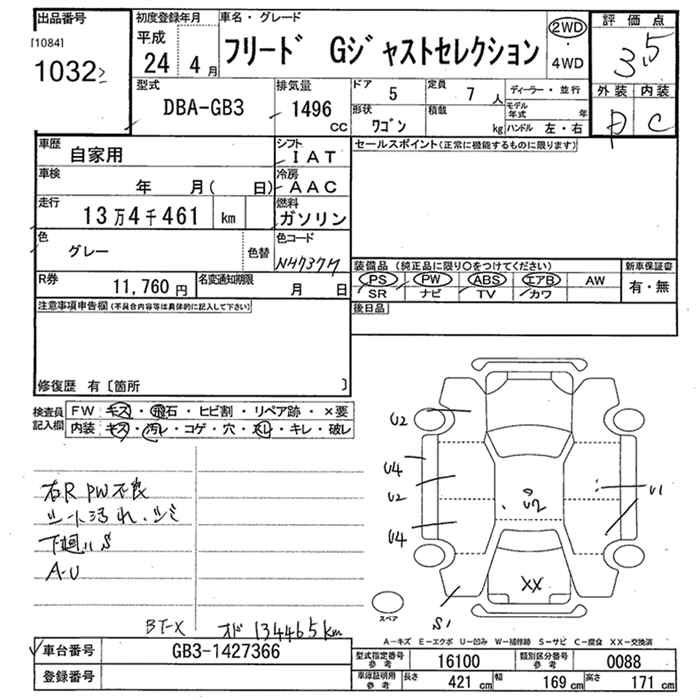 出品番号
[1084]
1032
初度登録年月
平成
24 4 月
車名・グレード
フリード Gジャストセレクション
2WD
・
4WD
評価点
3.5
外装 内装
C
型式
DBA-GB3
排気量
1496
CC
ドア
5
定員
7 人
ディーラー・並行
形状
ワゴン
積載
kg
モデル年式 年
ハンドル 左・右
車歴
自家用
シフト
IAT
車検
年 月( 日)
冷房
AAC
走行
13万4千461 km
燃料
ガソリン
色
グレー
色替
色コード
NH737M
R券
11,760 円
名変通知期限
月 日
セールスポイント(正常に機能するものに限ります)
装備品 (純正品に限り○をつけてください)
新車保証書
PS PW ABS エアB AW
SR ナビ TV カワ
有・無
注意事項申告欄(不具合内容等は具体的に記入して下さい)
後日品
修復歴 有〔箇所 〕
検査員
記入欄
FW キズ・飛石・ヒビ割・リペア跡・×要
内装 キズ・汚レ・コゲ・穴・スレ・キレ・破レ
右R PW不良
シート汚れ・シミ
下廻りS
A-U
BT-X オド 134465km
U2
U4
U2
U4
U2
U1
XX
S1
スペア
A-キズ E-エクボ U-凹み W-補修跡 S-サビ C-腐食 XX-交換済
車台番号
GB3-1427366
登録番号
型式指定番号
参考
16100
類別区分番号
参考
0088
車庫証明用
参考
長さ 421 cm
幅 169 cm
高さ 171 cm